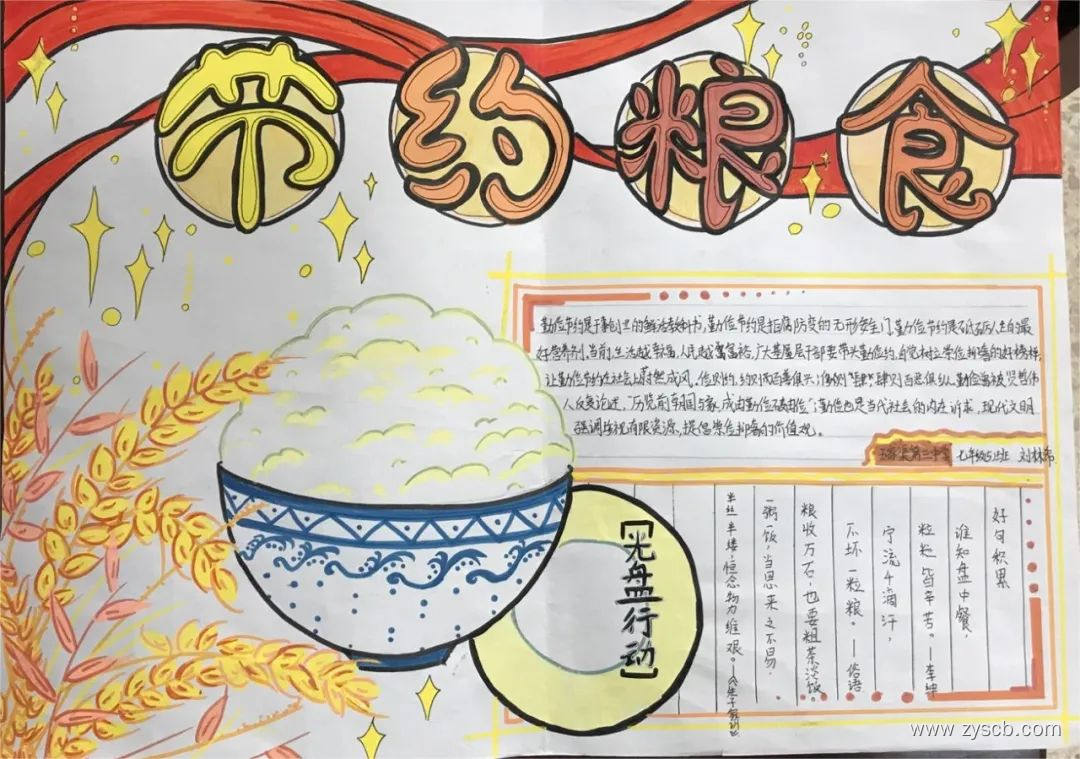 节约粮食
勤俭节约是干事创业的鲜活教科书,勤俭节约是拒腐防变的无形安全门,勤俭节约是砥砺人生的最
好营养剂。当前,生活越幸福,人民越富裕,广大基层干部要带头勤俭节约,自觉树立崇俭抑奢的好榜样,
让勤俭节约在社会上蔚然成风。俭则约,约则百善俱兴;侈则肆,肆则百恶俱纵。勤俭
人反复论述,“历览前朝国与家,成由勤俭破由奢”;勤俭也是当代社会的内在诉求,现代文明
强调珍视有限资源,提倡崇俭抑奢的价值观。
第三中学 七年级 班 刘林希
好句积累
谁知盘中餐
粒粒皆辛苦。—李绅
宁流千滴汗,
不坏一粒粮。—俗语
粮收万石,也要粗茶淡饭。
一粥一饭,当思来之不易,
半丝半缕,恒念物力维艰。—《朱子
【光盘行动】
www.zyscb.com